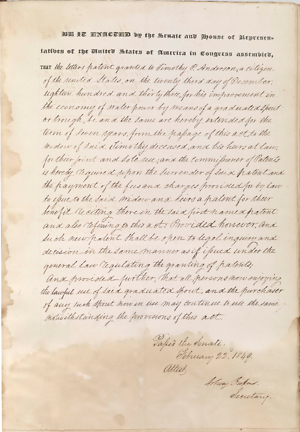 BE IT ENACTED by the Senate and House of Represen-
tatives of the United States of America in Congress assembled,
THAT the letters patent granted to Timothy P. Anderson, a citizen
of the United States, on the twenty third day of December
eighteen hundred and thirty three, for his improvement in
the economy of water power by means of a graduated spout
or trough, be, and the same are hereby extended for the
term of seven years from the passage of this act, to the
widow of said Timothy, deceased, and his heirs at law,
for their joint and sole use, and the Commissioner of Patents
is hereby required upon the surrender of said patent and
the payment of the fees and charges provided for by law
to issue to the said widow and heirs a patent for their
benefit reciting therein the said first named patent
and also referring to this act: Provided however, And
such new patent shall be open to legal inquiry and
decision in the same manner as if issued under the
general law regulating the granting of patents.
And provided further, That all persons now enjoying
the lawful use of said graduated spout, and the purchaser
of any such spout now in use may continue to use the same
notwithstanding the provisions of this act.
Passed the Senate
February 22, 1849.
Attest
Secretary.